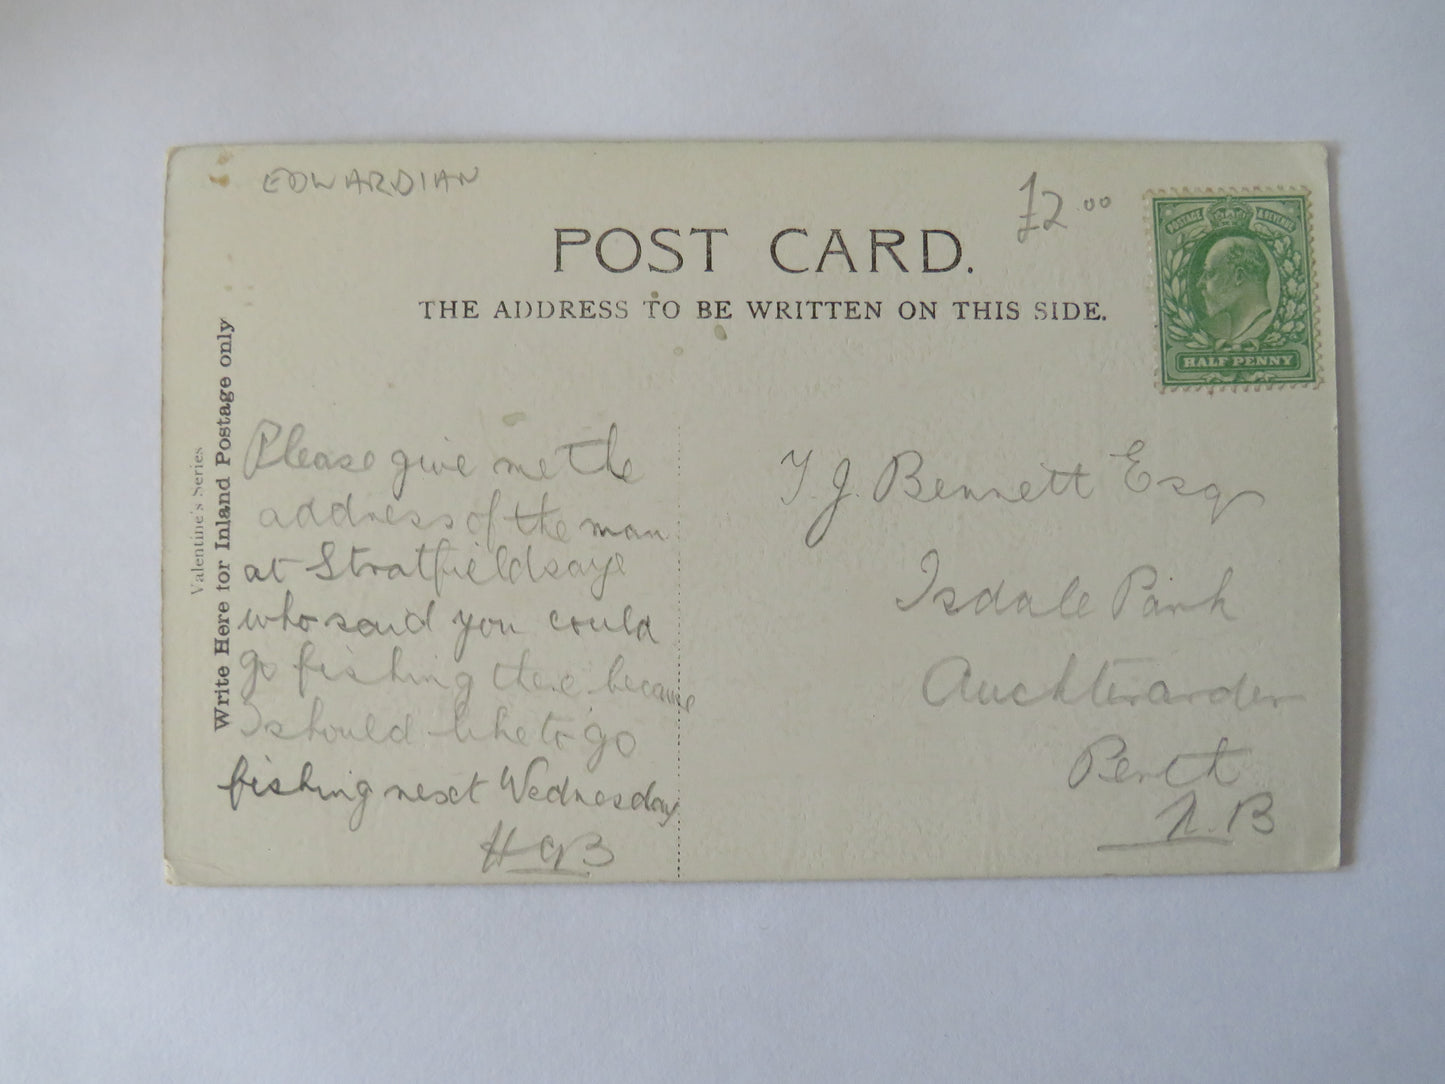 EDWARDIAN
£2.00
POST CARD.
THE ADDRESS TO BE WRITTEN ON THIS SIDE.
POSTAGE & REVENUE
HALF PENNY
Valentine's Series
Write Here for Inland Postage only
Please give me the
address of the man
at Stratfieldsaye
who said you could
go fishing there because
I should like to go
fishing next Wednesday
HGB
T. J. Bennett Esq
Isdale Park
Auchterarder
Perth
N.B